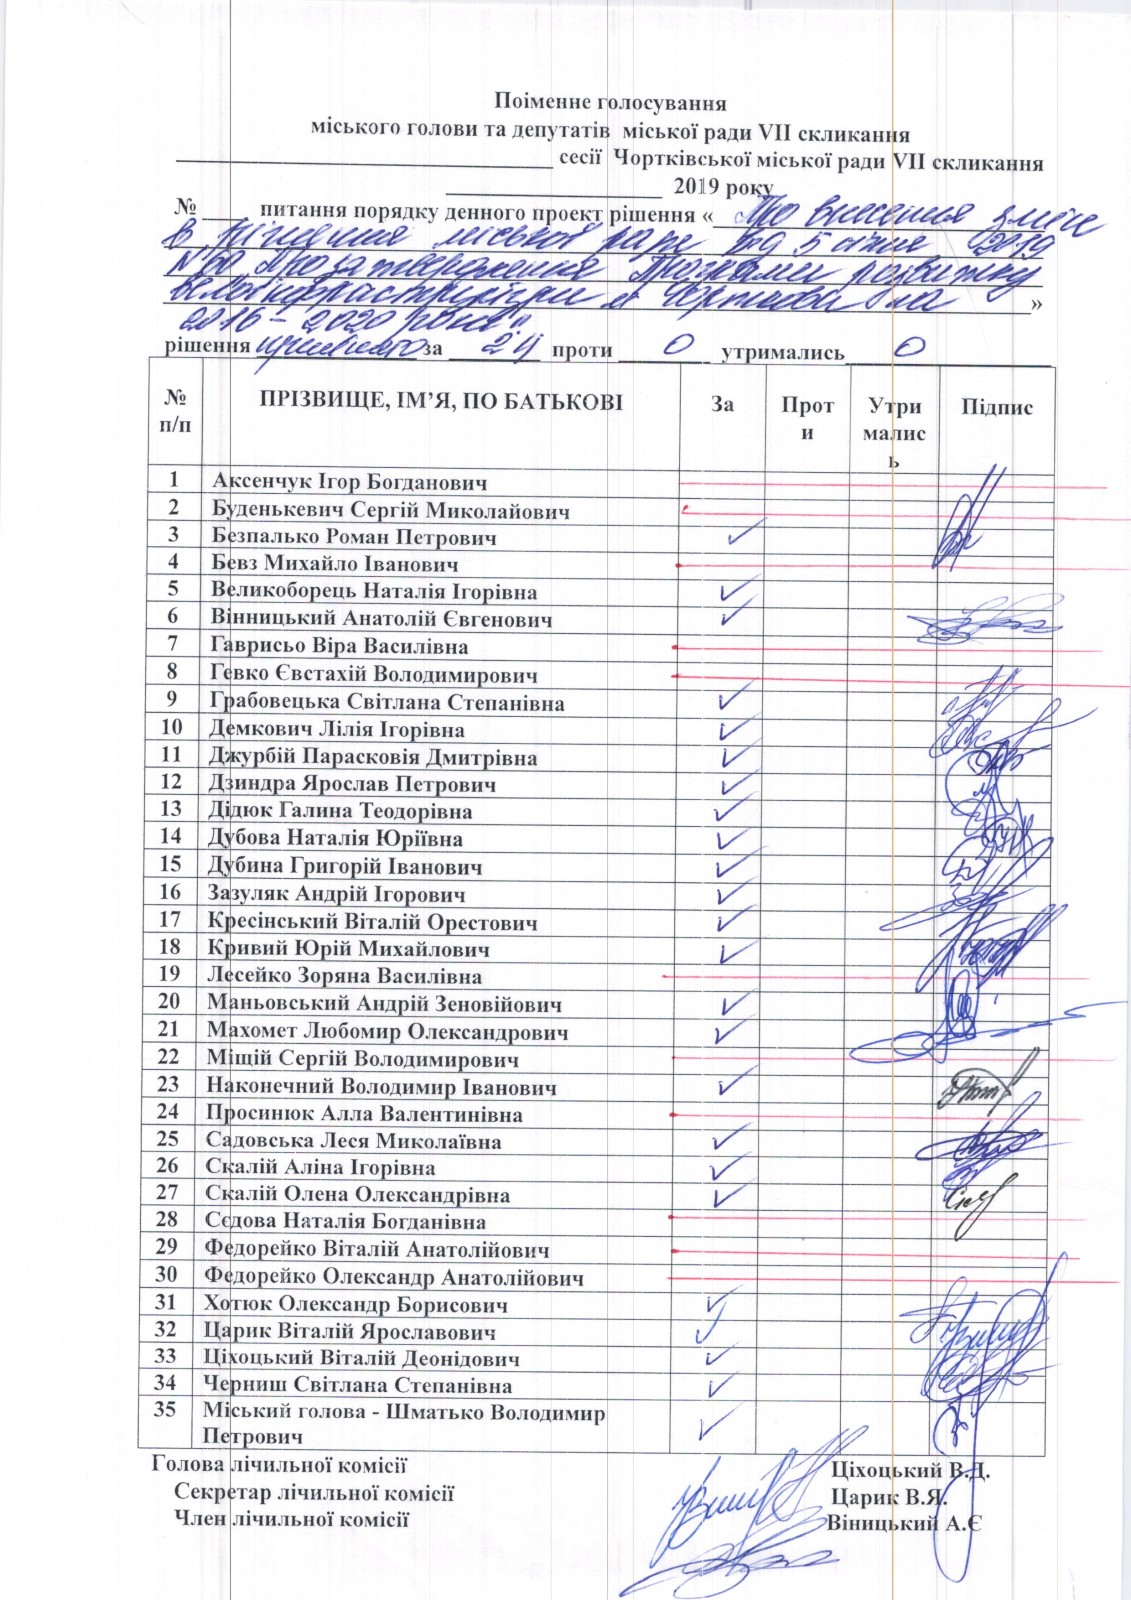 Поіменне голосування
міського голови та депутатів міської ради VII скликання
сесії Чортківської міської ради VII скликання
2019 року
№ питання порядку денного проект рішення « Про внесення змін
в рішення міської ради від 5 січня 2019
№60 Про затвердження Програми розвитку
велоінфраструктури в Чорткові на »
2016 – 2020 роки"
рішення прийнято за 24 проти 0 утримались 0
№ п/п ПРІЗВИЩЕ, ІМ’Я, ПО БАТЬКОВІ За Проти Утрималисъ Підпис
1 Аксенчук Ігор Богданович
2 Буденькевич Сергій Миколайович
3 Безпалько Роман Петрович ✓
4 Бевз Михайло Іванович
5 Великоборець Наталія Ігорівна ✓
6 Вінницький Анатолій Євгенович ✓
7 Гаврисьо Віра Василівна
8 Гевко Євстахій Володимирович
9 Грабовецька Світлана Степанівна ✓
10 Демкович Лілія Ігорівна ✓
11 Джурбій Парасковія Дмитрівна ✓
12 Дзиндра Ярослав Петрович ✓
13 Дідюк Галина Теодорівна ✓
14 Дубова Наталія Юріївна ✓
15 Дубина Григорій Іванович ✓
16 Зазуляк Андрій Ігорович ✓
17 Кресінський Віталій Орестович ✓
18 Кривий Юрій Михайлович ✓
19 Лесейко Зоряна Василівна
20 Маньовський Андрій Зеновійович ✓
21 Махомет Любомир Олександрович ✓
22 Міщій Сергій Володимирович
23 Наконечний Володимир Іванович ✓
24 Просинюк Алла Валентинівна
25 Садовська Леся Миколаївна ✓
26 Скалій Аліна Ігорівна ✓
27 Скалій Олена Олександрівна ✓
28 Сєдова Наталія Богданівна
29 Федорейко Віталій Анатолійович
30 Федорейко Олександр Анатолійович
31 Хотюк Олександр Борисович ✓
32 Царик Віталій Ярославович ✓
33 Ціхоцький Віталій Деонідович ✓
34 Черниш Світлана Степанівна ✓
35 Міський голова - Шматько Володимир Петрович ✓
Голова лічильної комісії Ціхоцький В.Д.
Секретар лічильної комісії Царик В.Я.
Член лічильної комісії Віницький А.Є